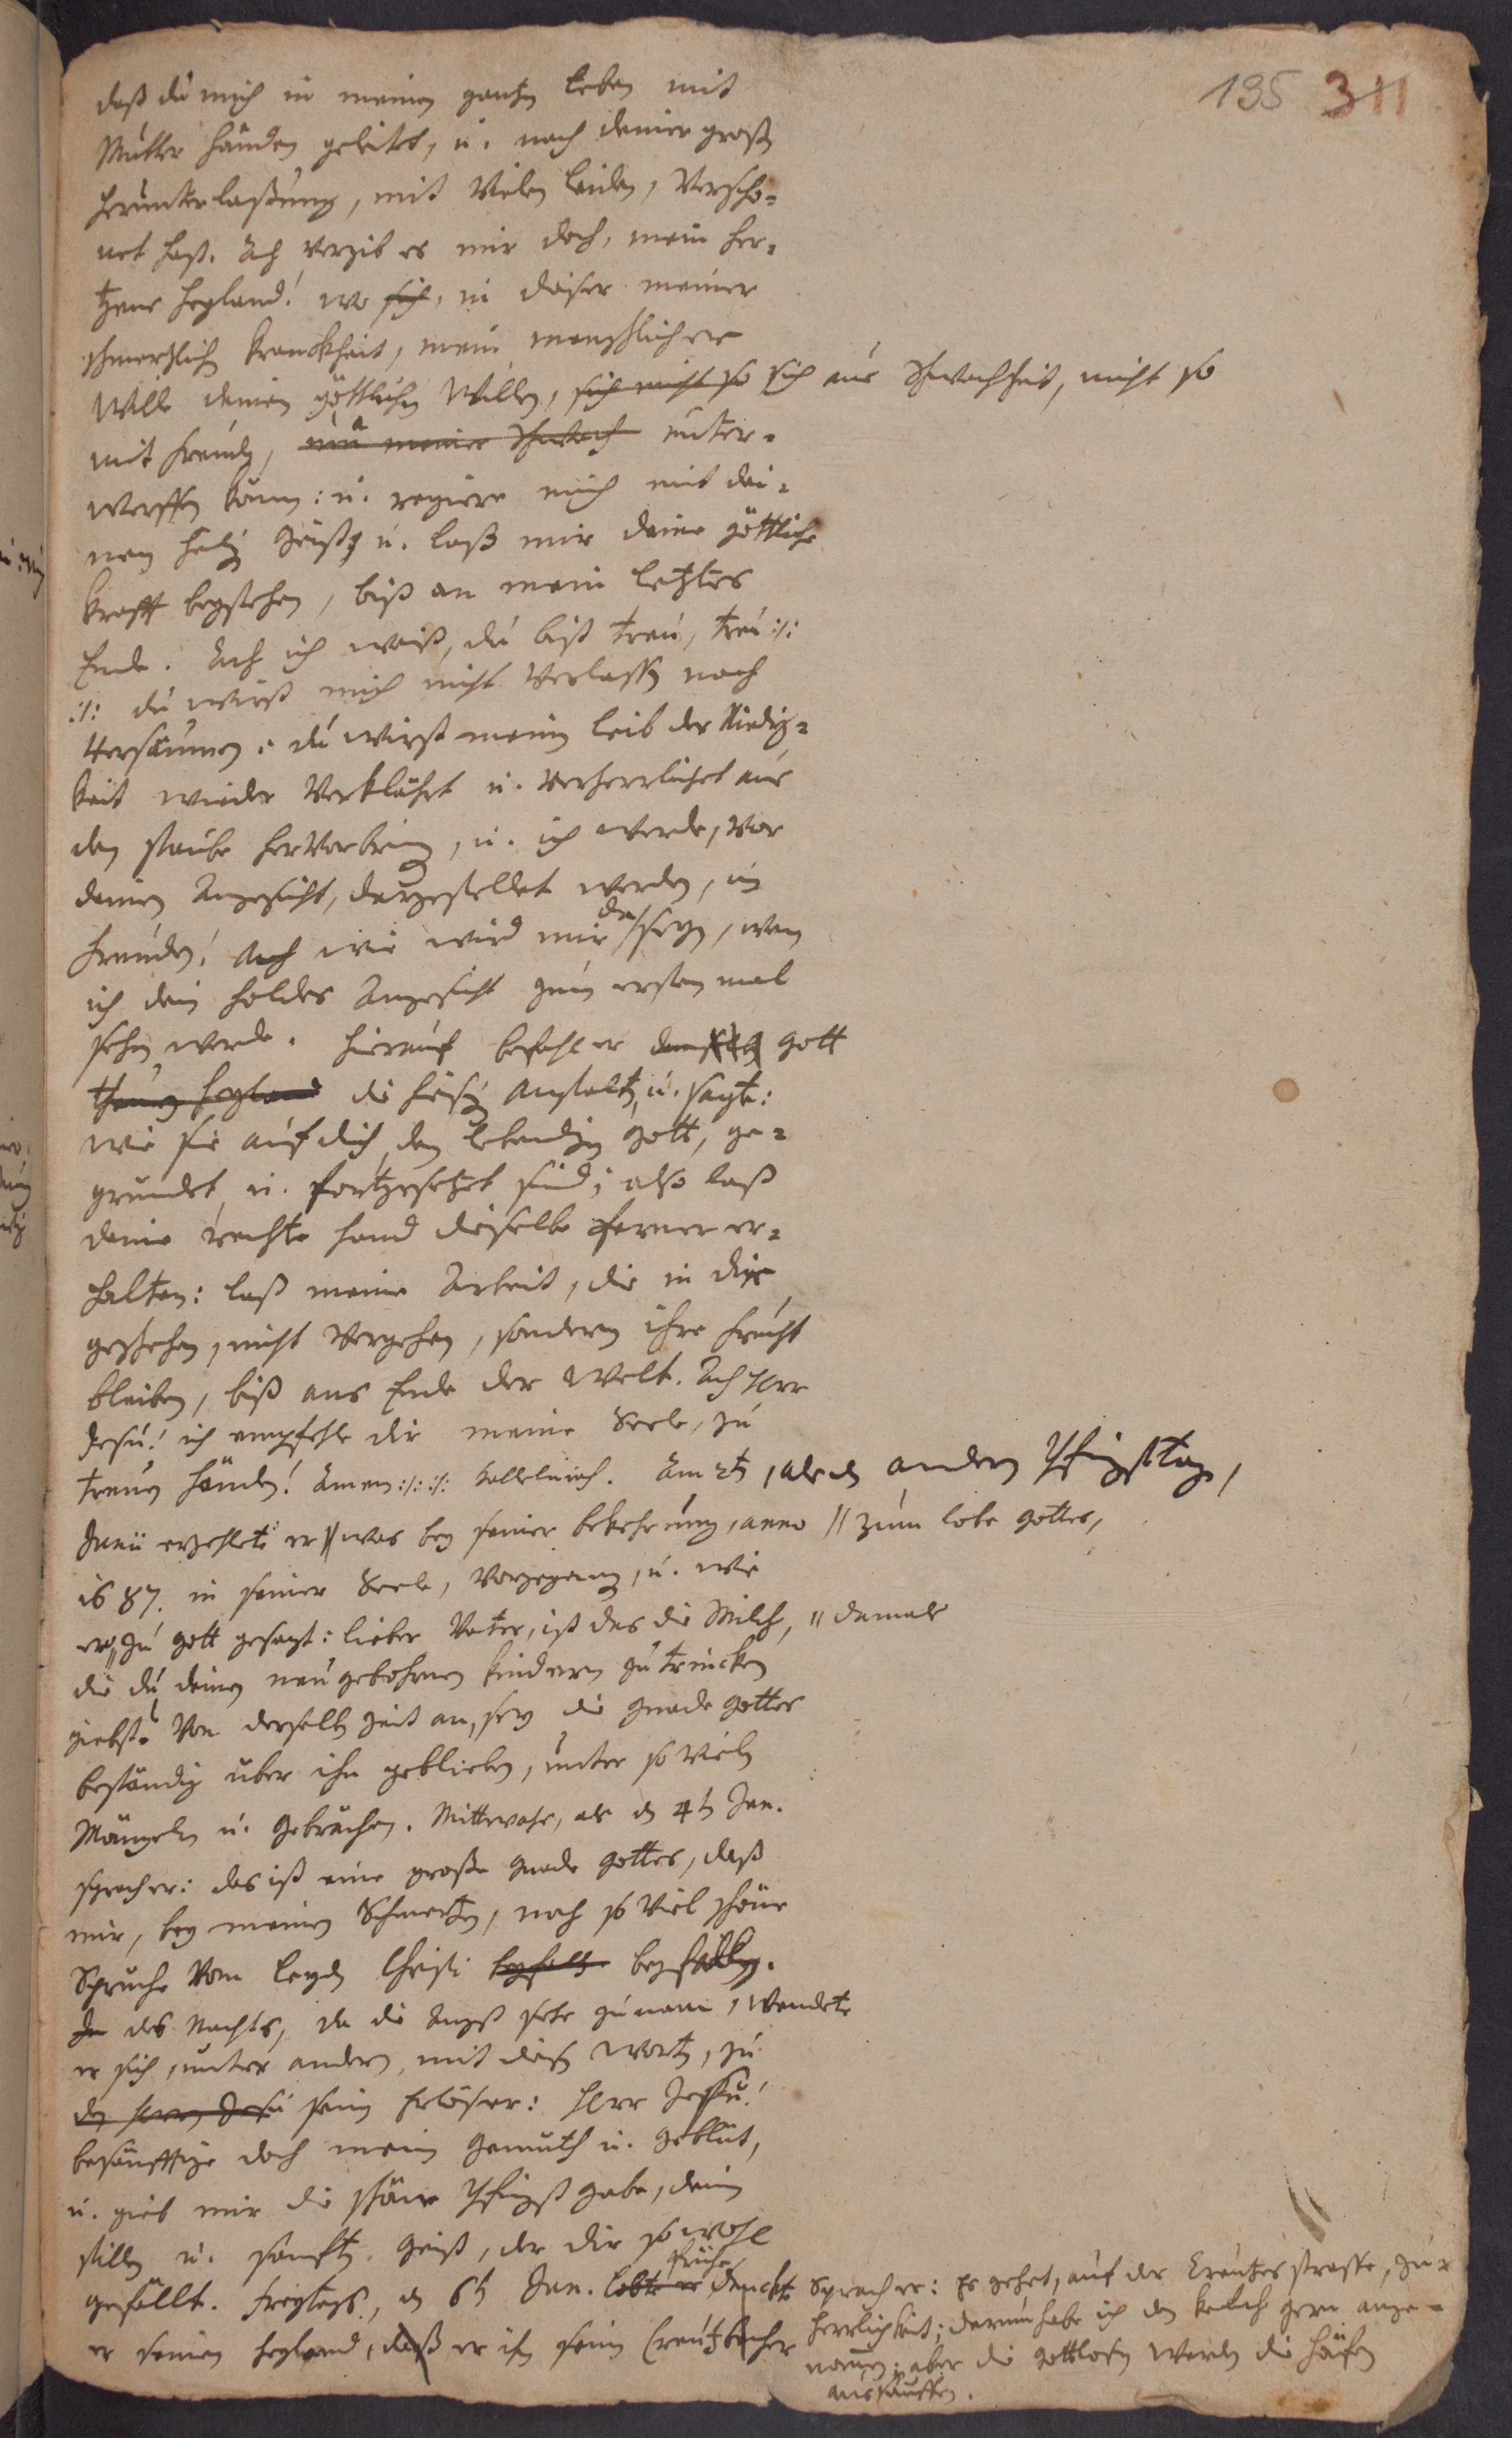 135 311
daß du mich in meinen gantzen leben mit
Mutter händen geleitet, u. nach deiner großen
herunterlaßung, mit vielen leiden, verscho-
net hast. Ach verzeih es mir doch, mein her-
tzens heyland! wo sich, in dieser meiner
schmertzlichen kranckheit, mein menschlicher
Wille deinen göttlichen Willen, sich nicht so sich aus schwachheit, nicht so
mit freuden, meiner schwach unter-
werffen kann: u. regiere mich mit dei-
nen heiligen Geist u. laß mir deine göttliche
krafft beystehen, biß an mein letztes
Ende. Ach ich weiß, du bist treu, treu :/:
:/: du wirst mich nicht verlaßen noch
versäumen. du wirst meinen leib der Niedrig-
keit wieder verklährt u. verherrlichet aus
den staube hervorbringen, u. ich werde, vor
deinen Angesicht, dargestellet werden, in
freuden! Ach wie wird mir da seyn, wenn
ich dein holdes Angesicht zum ersten mal
sehen werde. Hierauf befahl er Gott
theuren heyland die hiesigen Anstalten u. sagte:
wie sie auf dich, den lebendigen Gott, ge-
gründet u. fortgesetzet sind; also laß
deine rechte hand dieselbe ferner er-
halten: laß meine Arbeit, die in dir
geschehen, nicht vergehen, sondern ihre frucht
bleiben, biß ans Ende der Welt. Ach HErr
Jesu! ich empfehle dir meine Seele, zu
treuen händen! Amen :/: :/: Halleluiah. Am 2ten, als den andern Pfingsttag,
Junii erzehlete er // was bey seiner bekehrung, anno // zum lobe Gottes,
1687. in seiner Seele, vorgegangen, u. wie
er // zu Gott gesagt: lieber Vater, ist das die Milch, // damals
die du deinen neugebohrnen kindern zu trincken
giebst? Von derselben Zeit an, sey die Gnade Gottes
beständig über ihn geblieben, unter so vielen
Mängeln u. Gebrechen. Mittwochs, als den 4ten Jun.
sprach er: das ist eine große Gnade Gottes, daß
mir, bey meinen Schmertzen, noch so viel schöne
Sprüche vom leyden Christi beyfallen beyfallen.
In des Nachts, da die Angst sehr zunam, wendete
er sich, unter andern, mit diesen worten, zu
den HErrn Jesu seinen Erlöser: HErr Jesu!
besänfftige doch mein Gemüth u. Geblüt,
u. gieb mir die schöne Pfingst gabe, deinen
stillen u. sanften Geist, der dir so wohl
gefällt. Freytags, den 6ten Jun. lobte er frühe danckte
er seinen heyland, daß er ihn seinen Creutzbecher
sprach er: Es gehet, auf der Creutzes strasse, zur
herrlichkeit; darum habe ich den kelch gern ange-
nomen; aber die gottlosen werden die häfen
aussauffen.